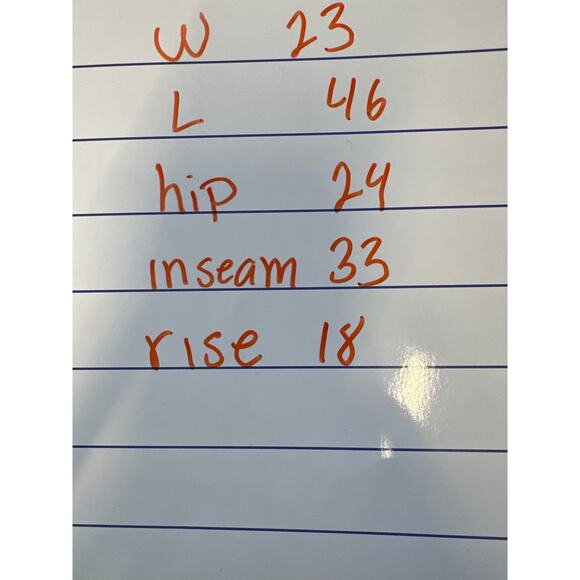 W 23
L 46
hip 24
inseam 33
rise 18